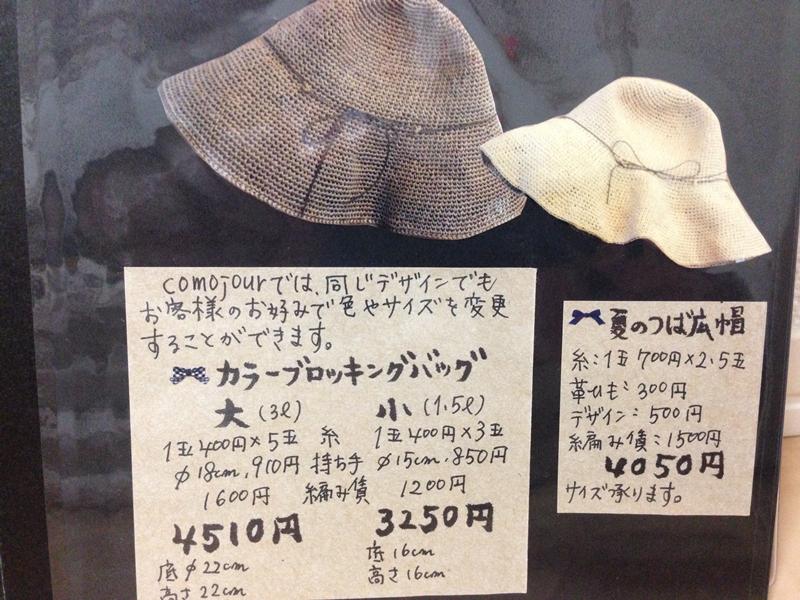 comojourでは、同じデザインでも
お客様のお好みで色やサイズを変更
することができます。
カラーブロッキングバッグ
大(3ℓ) 小(1.5ℓ)
1玉400円×5玉 糸 1玉400円×3玉
φ18cm,910円 持ち手 φ15cm,850円
1600円 編み賃 1200円
4510円 3250円
底φ22cm 底16cm
高さ22cm 高さ16cm
夏のつば広帽
糸:1玉700円×2.5玉
革ひも:300円
デザイン:500円
編み賃:1500円
4050円
サイズ承ります。